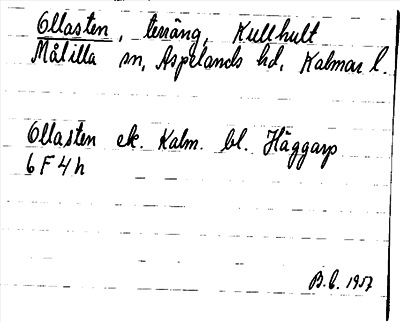 Ollasten, terräng, Kullhult
Målilla sn, Aspelands hd, Kalmar l.
Ollasten ek. Kalm. bl. Häggarp
6 F 4 h
B.C. 1957